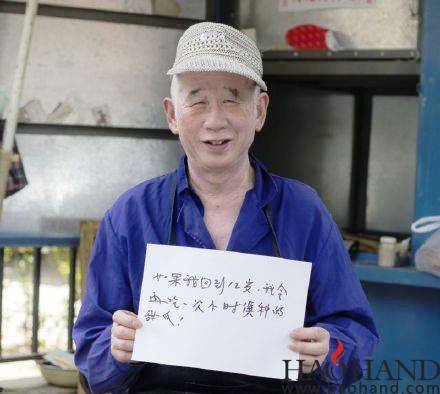 如果能回到12岁，我会
再吃一次小时候种的
甜瓜！
HAOHAND
www.haohand.com